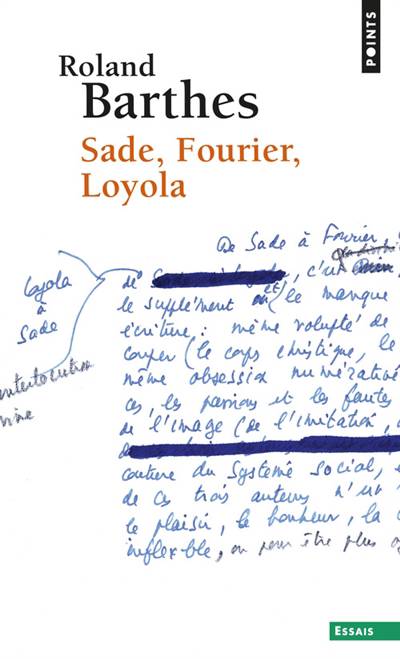 POINTS
Roland
Barthes
Sade, Fourier,
Loyola
De Sade à Fourier
Loyola
à
Sade
de
le supplément ou et (le manque
écriture : même volupté de
couper (le corps christique, le
même obsession numérative
ces, les passions et les fautes
de l'image (de l'imitation,
couture du système social,
de ces trois auteurs n'
le plaisir, le bonheur, la
inflexible, on peut être plus
ESSAIS